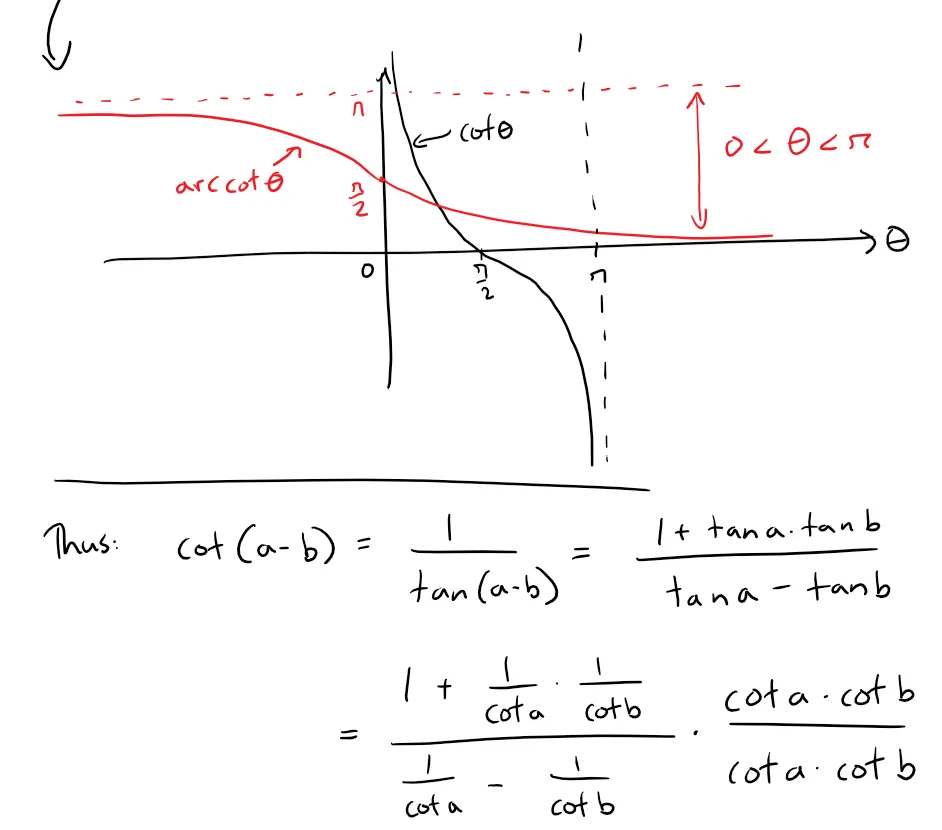 π
cot θ
0 < θ < π
arccot θ
π/2
θ
0
π/2
π
Thus: cot (a-b) = 1/tan(a-b) = (1 + tan a · tan b)/(tan a - tan b)
= (1 + 1/cot a · 1/cot b)/(1/cot a - 1/cot b) · (cot a · cot b)/(cot a · cot b)